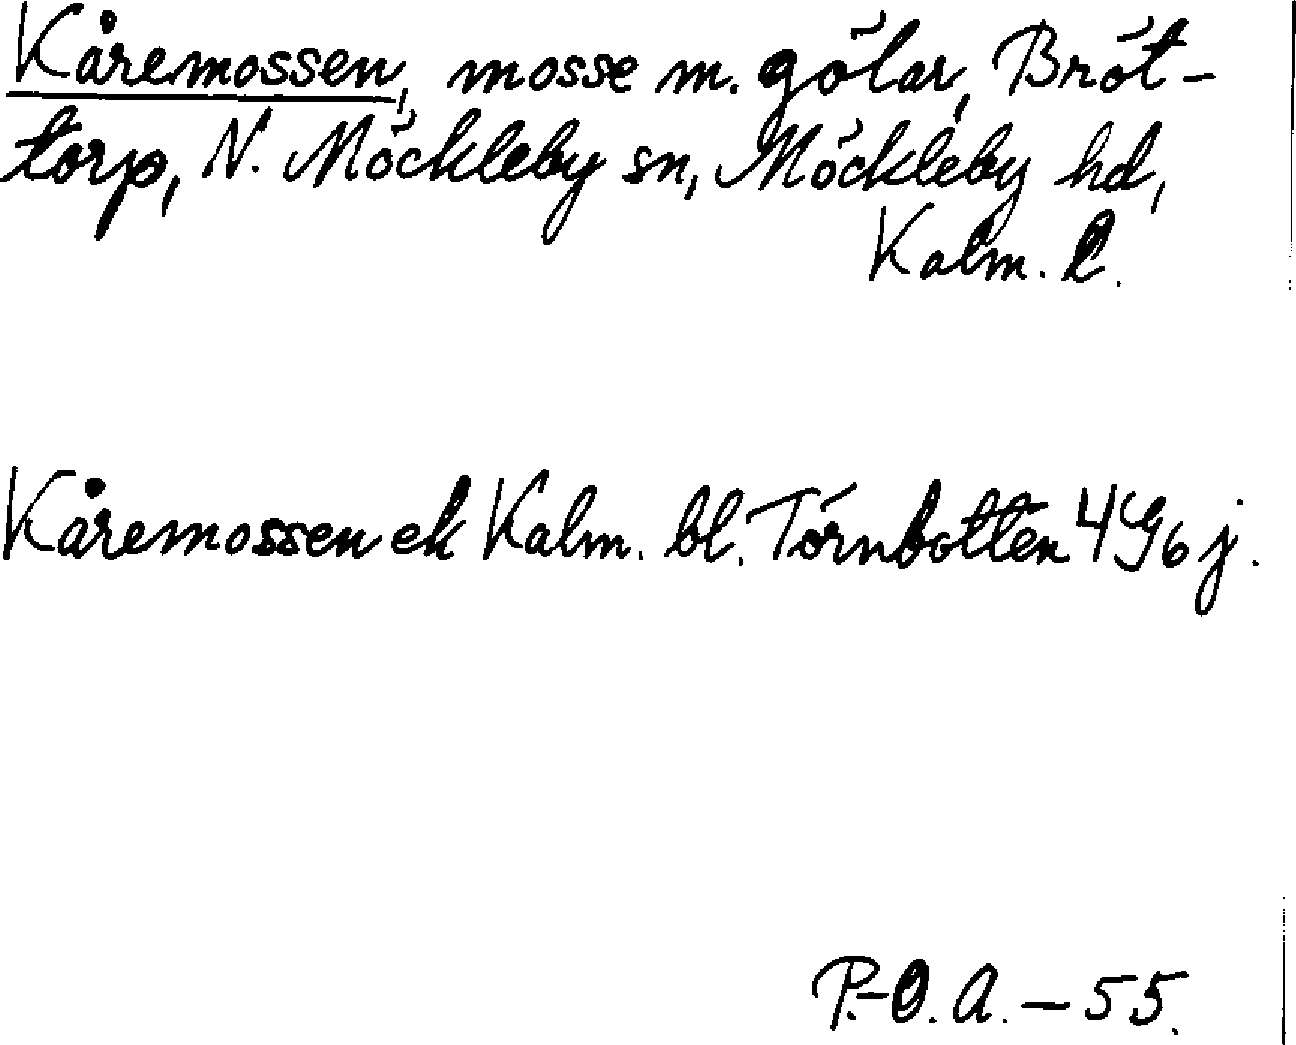 Kåremossen, mosse m. gölar, Bröt-
torp, N. Möckleby sn, Möckleby hd,
Kalm. l.
Kåremossen ek Kalm. bl. Törnbotten 4G6j.
P.-O. A. – 55.